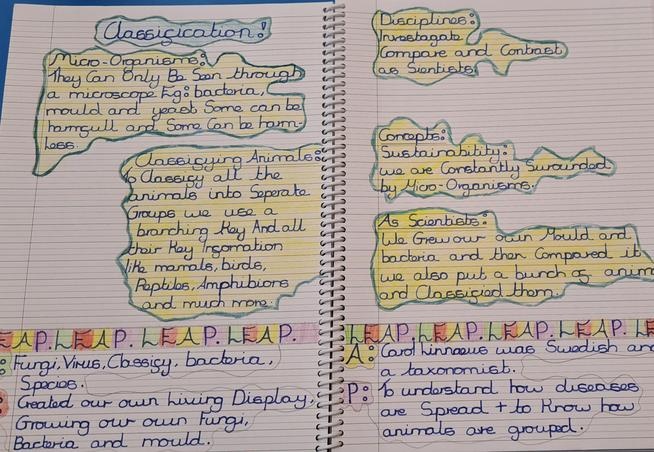 Classification!
Micro-Organisms:
They Can Only Be Seen through
a microscope Eg: bacteria,
mould and yeast Some can be
harmfull and Some Can be harm-
less.
Classifying Animals:
To Classify all the
animals into Seperate
Groups we use a
branching Key And all
their Key Information
like mamals, birds,
Reptiles, Amphibions
and much more.
LEAP. LEAP. LEAP. LEAP.
Fungi, Virus, Classify, bacteria,
Species.
Created our own Living Display,
Growing our own Fungi,
Bacteria and mould.
Disciplines:
Investagate
Compare and Contrast
as Sientists
Concepts:
Sustainability:
we are Constantly Surounded
by Micro-Organisms.
As Scientists:
We Grew our own Mould and
bacteria and then Compared it
we also put a bunch of anim
and Classified them.
LEAP. LEAP. LEAP. LEAP. LE
A: Carol Linnaeus was Swedish an
a taxonomist.
P: To understand how diseases
are Spread + to Know how
animals are grouped.